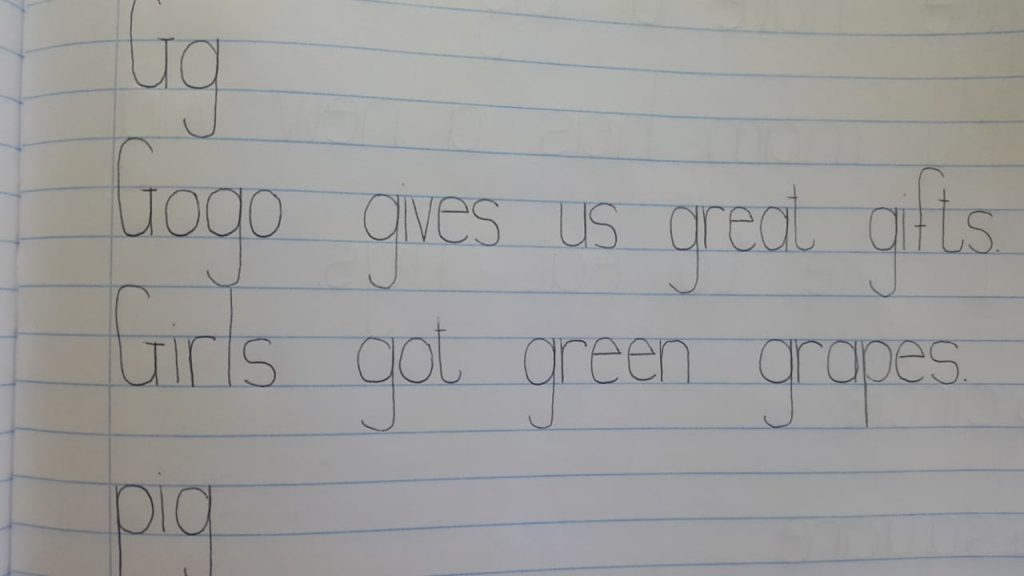 Gg
Gogo gives us great gifts.
Girls got green grapes.
pig